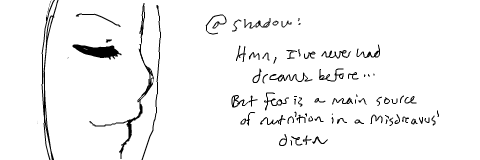 @shadow:
Hmn, I've never had
dreams before...
But fear is a main source
of nutrition in a Misdreavus'
dietn